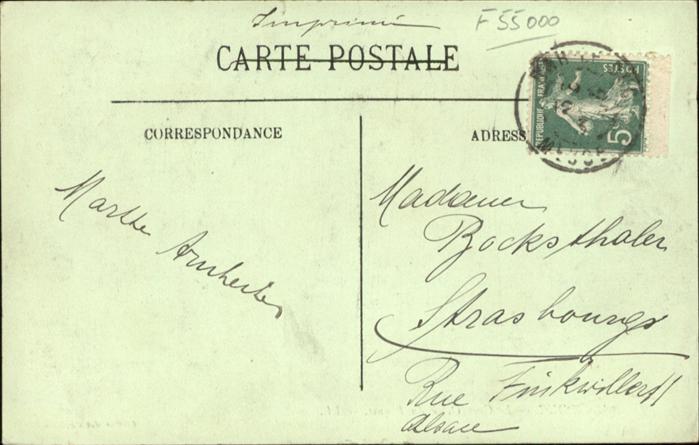 Imprimé
F 55000
CARTE POSTALE
CORRESPONDANCE
ADRESS
POSTES
REPUBLIQUE FRANC
5
Marthe
Madame
Bocksthaler
Strasbourg
Rue Finkwiller
Alsace